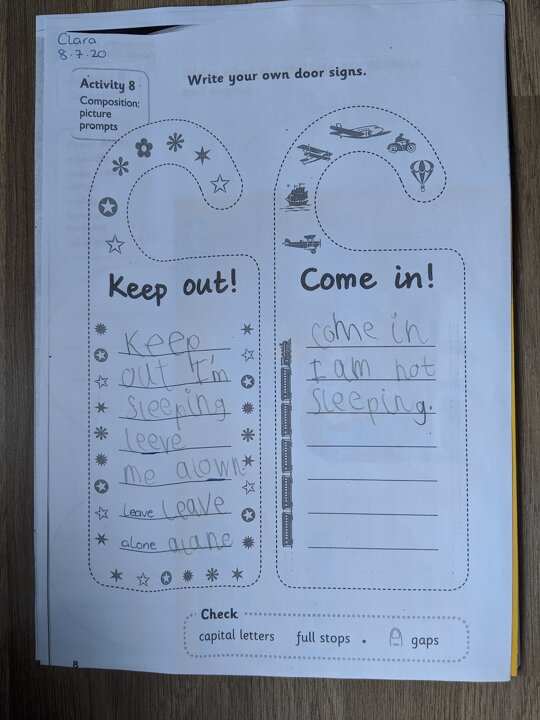 Clara
8.7.20
Activity 8
Composition:
picture
prompts
Write your own door signs.
Keep out!
Keep
out I'm
sleeping
leeve
me alown
leave leave
alone alane
Come in!
come in
I am not
sleeping.
Check
capital letters full stops . gaps
8